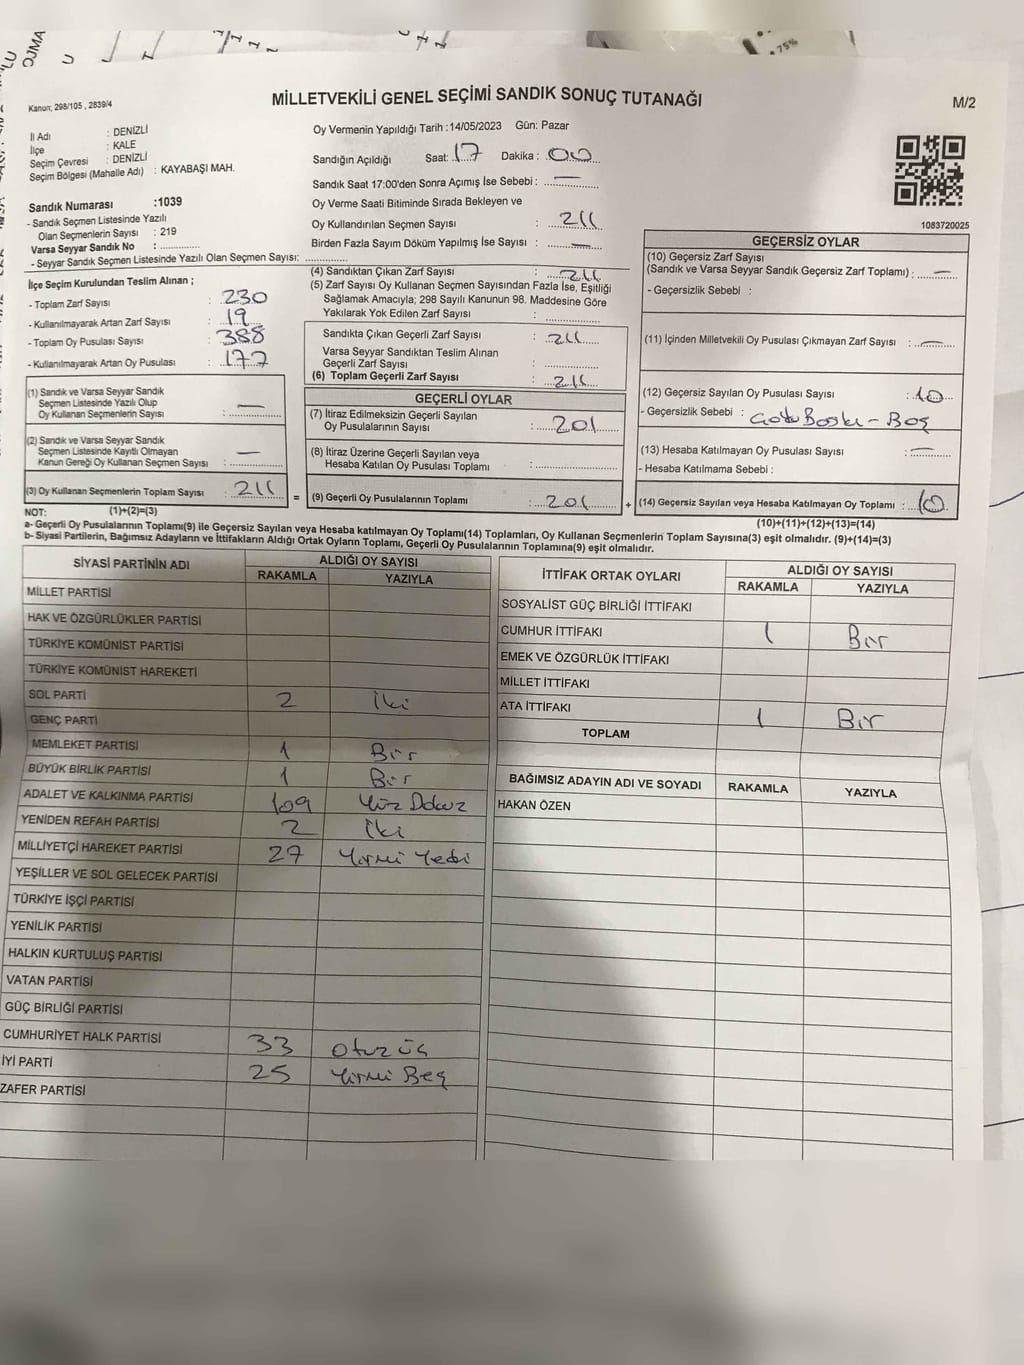 Kanun; 298/105 , 2839/4
MİLLETVEKİLİ GENEL SEÇİMİ SANDIK SONUÇ TUTANAĞI
M/2
İl Adı : DENİZLİ
İlçe : KALE
Seçim Çevresi : DENİZLİ
Seçim Bölgesi (Mahalle Adı) : KAYABAŞI MAH.
Sandık Numarası :1039
- Sandık Seçmen Listesinde Yazılı
Olan Seçmenlerin Sayısı : 219
Varsa Seyyar Sandık No : ..............
- Seyyar Sandık Seçmen Listesinde Yazılı Olan Seçmen Sayısı: ..............
Oy Vermenin Yapıldığı Tarih :14/05/2023 Gün: Pazar
Sandığın Açıldığı Saat: 17 Dakika : 00
Sandık Saat 17:00'den Sonra Açımış İse Sebebi : —
Oy Verme Saati Bitiminde Sırada Bekleyen ve
Oy Kullandırılan Seçmen Sayısı : 211
Birden Fazla Sayım Döküm Yapılmış İse Sayısı : —
1083720025
İlçe Seçim Kurulundan Teslim Alınan ;
- Toplam Zarf Sayısı : 230
- Kullanılmayarak Artan Zarf Sayısı : 19
- Toplam Oy Pusulası Sayısı : 388
- Kullanılmayarak Artan Oy Pusulası : 177
(1) Sandık ve Varsa Seyyar Sandık
Seçmen Listesinde Yazılı Olup
Oy Kullanan Seçmenlerin Sayısı : —
(2) Sandık ve Varsa Seyyar Sandık
Seçmen Listesinde Kayıtlı Olmayan
Kanun Gereği Oy Kullanan Seçmen Sayısı : —
(3) Oy Kullanan Seçmenlerin Toplam Sayısı : 211 =
(4) Sandıktan Çıkan Zarf Sayısı : 211
(5) Zarf Sayısı Oy Kullanan Seçmen Sayısından Fazla İse, Eşitliği
Sağlamak Amacıyla; 298 Sayılı Kanunun 98. Maddesine Göre
Yakılarak Yok Edilen Zarf Sayısı : ..............
Sandıkta Çıkan Geçerli Zarf Sayısı : 211
Varsa Seyyar Sandıktan Teslim Alınan
Geçerli Zarf Sayısı : ..............
(6) Toplam Geçerli Zarf Sayısı : 211
GEÇERLİ OYLAR
(7) İtiraz Edilmeksizin Geçerli Sayılan
Oy Pusulalarının Sayısı : 201
(8) İtiraz Üzerine Geçerli Sayılan veya
Hesaba Katılan Oy Pusulası Toplamı : ..............
(9) Geçerli Oy Pusulalarının Toplamı : 201 +
GEÇERSİZ OYLAR
(10) Geçersiz Zarf Sayısı
(Sandık ve Varsa Seyyar Sandık Geçersiz Zarf Toplamı) : —
- Geçersizlik Sebebi :
(11) İçinden Milletvekili Oy Pusulası Çıkmayan Zarf Sayısı : —
(12) Geçersiz Sayılan Oy Pusulası Sayısı : 10
- Geçersizlik Sebebi : - Boş
(13) Hesaba Katılmayan Oy Pusulası Sayısı : —
- Hesaba Katılmama Sebebi :
(14) Geçersiz Sayılan veya Hesaba Katılmayan Oy Toplamı : 10
NOT: (1)+(2)=(3)
(10)+(11)+(12)+(13)=(14)
a- Geçerli Oy Pusulalarının Toplamı(9) ile Geçersiz Sayılan veya Hesaba katılmayan Oy Toplamı(14) Toplamları, Oy Kullanan Seçmenlerin Toplam Sayısına(3) eşit olmalıdır. (9)+(14)=(3)
b- Siyasi Partilerin, Bağımsız Adayların ve İttifakların Aldığı Ortak Oyların Toplamı, Geçerli Oy Pusulalarının Toplamına(9) eşit olmalıdır.
SİYASİ PARTİNİN ADI ALDIĞI OY SAYISI
RAKAMLA YAZIYLA
MİLLET PARTİSİ
HAK VE ÖZGÜRLÜKLER PARTİSİ
TÜRKİYE KOMÜNİST PARTİSİ
TÜRKİYE KOMÜNİST HAREKETİ
SOL PARTİ 2 İki
GENÇ PARTİ
MEMLEKET PARTİSİ 1 Bir
BÜYÜK BİRLİK PARTİSİ 1 Bir
ADALET VE KALKINMA PARTİSİ 109 Yüz Dokuz
YENİDEN REFAH PARTİSİ 2 İki
MİLLİYETÇİ HAREKET PARTİSİ 27 Yirmi Yedi
YEŞİLLER VE SOL GELECEK PARTİSİ
TÜRKİYE İŞÇİ PARTİSİ
YENİLİK PARTİSİ
HALKIN KURTULUŞ PARTİSİ
VATAN PARTİSİ
GÜÇ BİRLİĞİ PARTİSİ
CUMHURİYET HALK PARTİSİ 33 Otuz üç
İYİ PARTİ 25 Yirmi Beş
ZAFER PARTİSİ
İTTİFAK ORTAK OYLARI ALDIĞI OY SAYISI
RAKAMLA YAZIYLA
SOSYALİST GÜÇ BİRLİĞİ İTTİFAKI
CUMHUR İTTİFAKI 1 Bir
EMEK VE ÖZGÜRLÜK İTTİFAKI
MİLLET İTTİFAKI
ATA İTTİFAKI 1 Bir
TOPLAM
BAĞIMSIZ ADAYIN ADI VE SOYADI RAKAMLA YAZIYLA
HAKAN ÖZEN